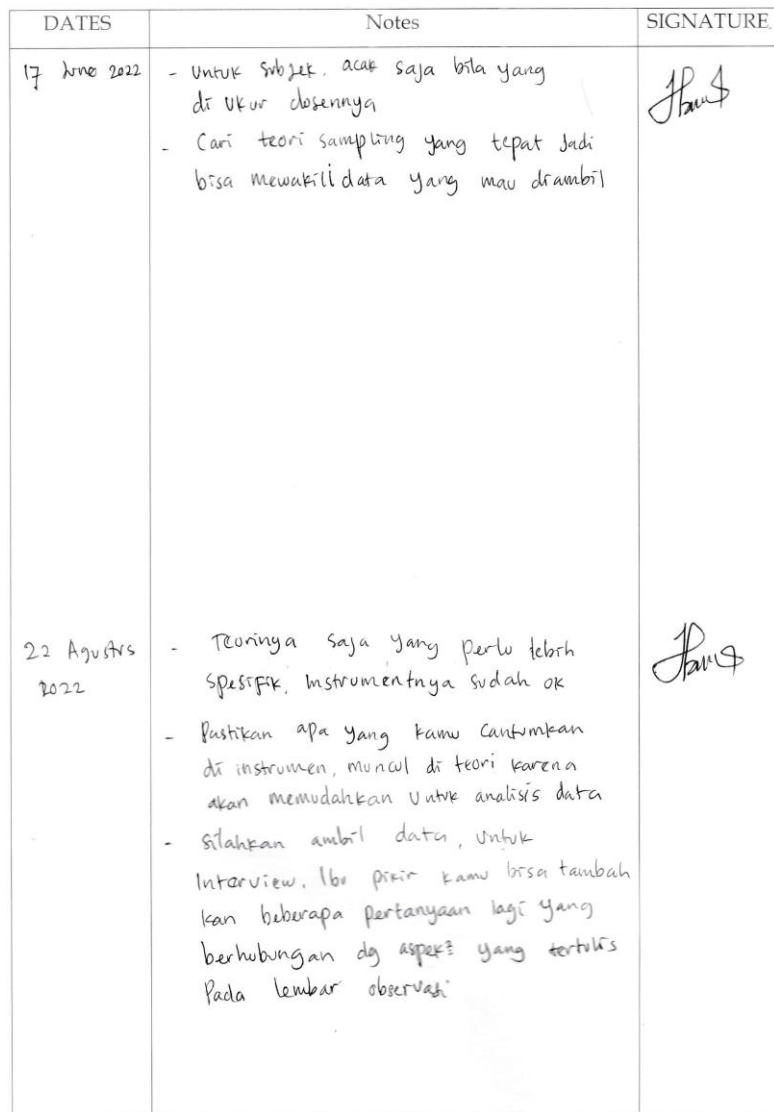 DATES
Notes
SIGNATURE
17 June 2022
- Untuk subjek, acak saja bila yang
di ukur dosennya
- Cari teori sampling yang tepat jadi
bisa mewakili data yang mau diambil
22 Agustus
2022
- Teorinya saja yang perlu lebih
spesifik, instrumentnya sudah ok
- Pastikan apa yang kamu cantumkan
di instrumen, muncul di teori karena
akan memudahkan untuk analisis data
- Silahkan ambil data, untuk
Interview, Ibu pikir kamu bisa tambah
kan beberapa pertanyaan lagi yang
berhubungan dg aspek² yang tertulis
Pada lembar observasi